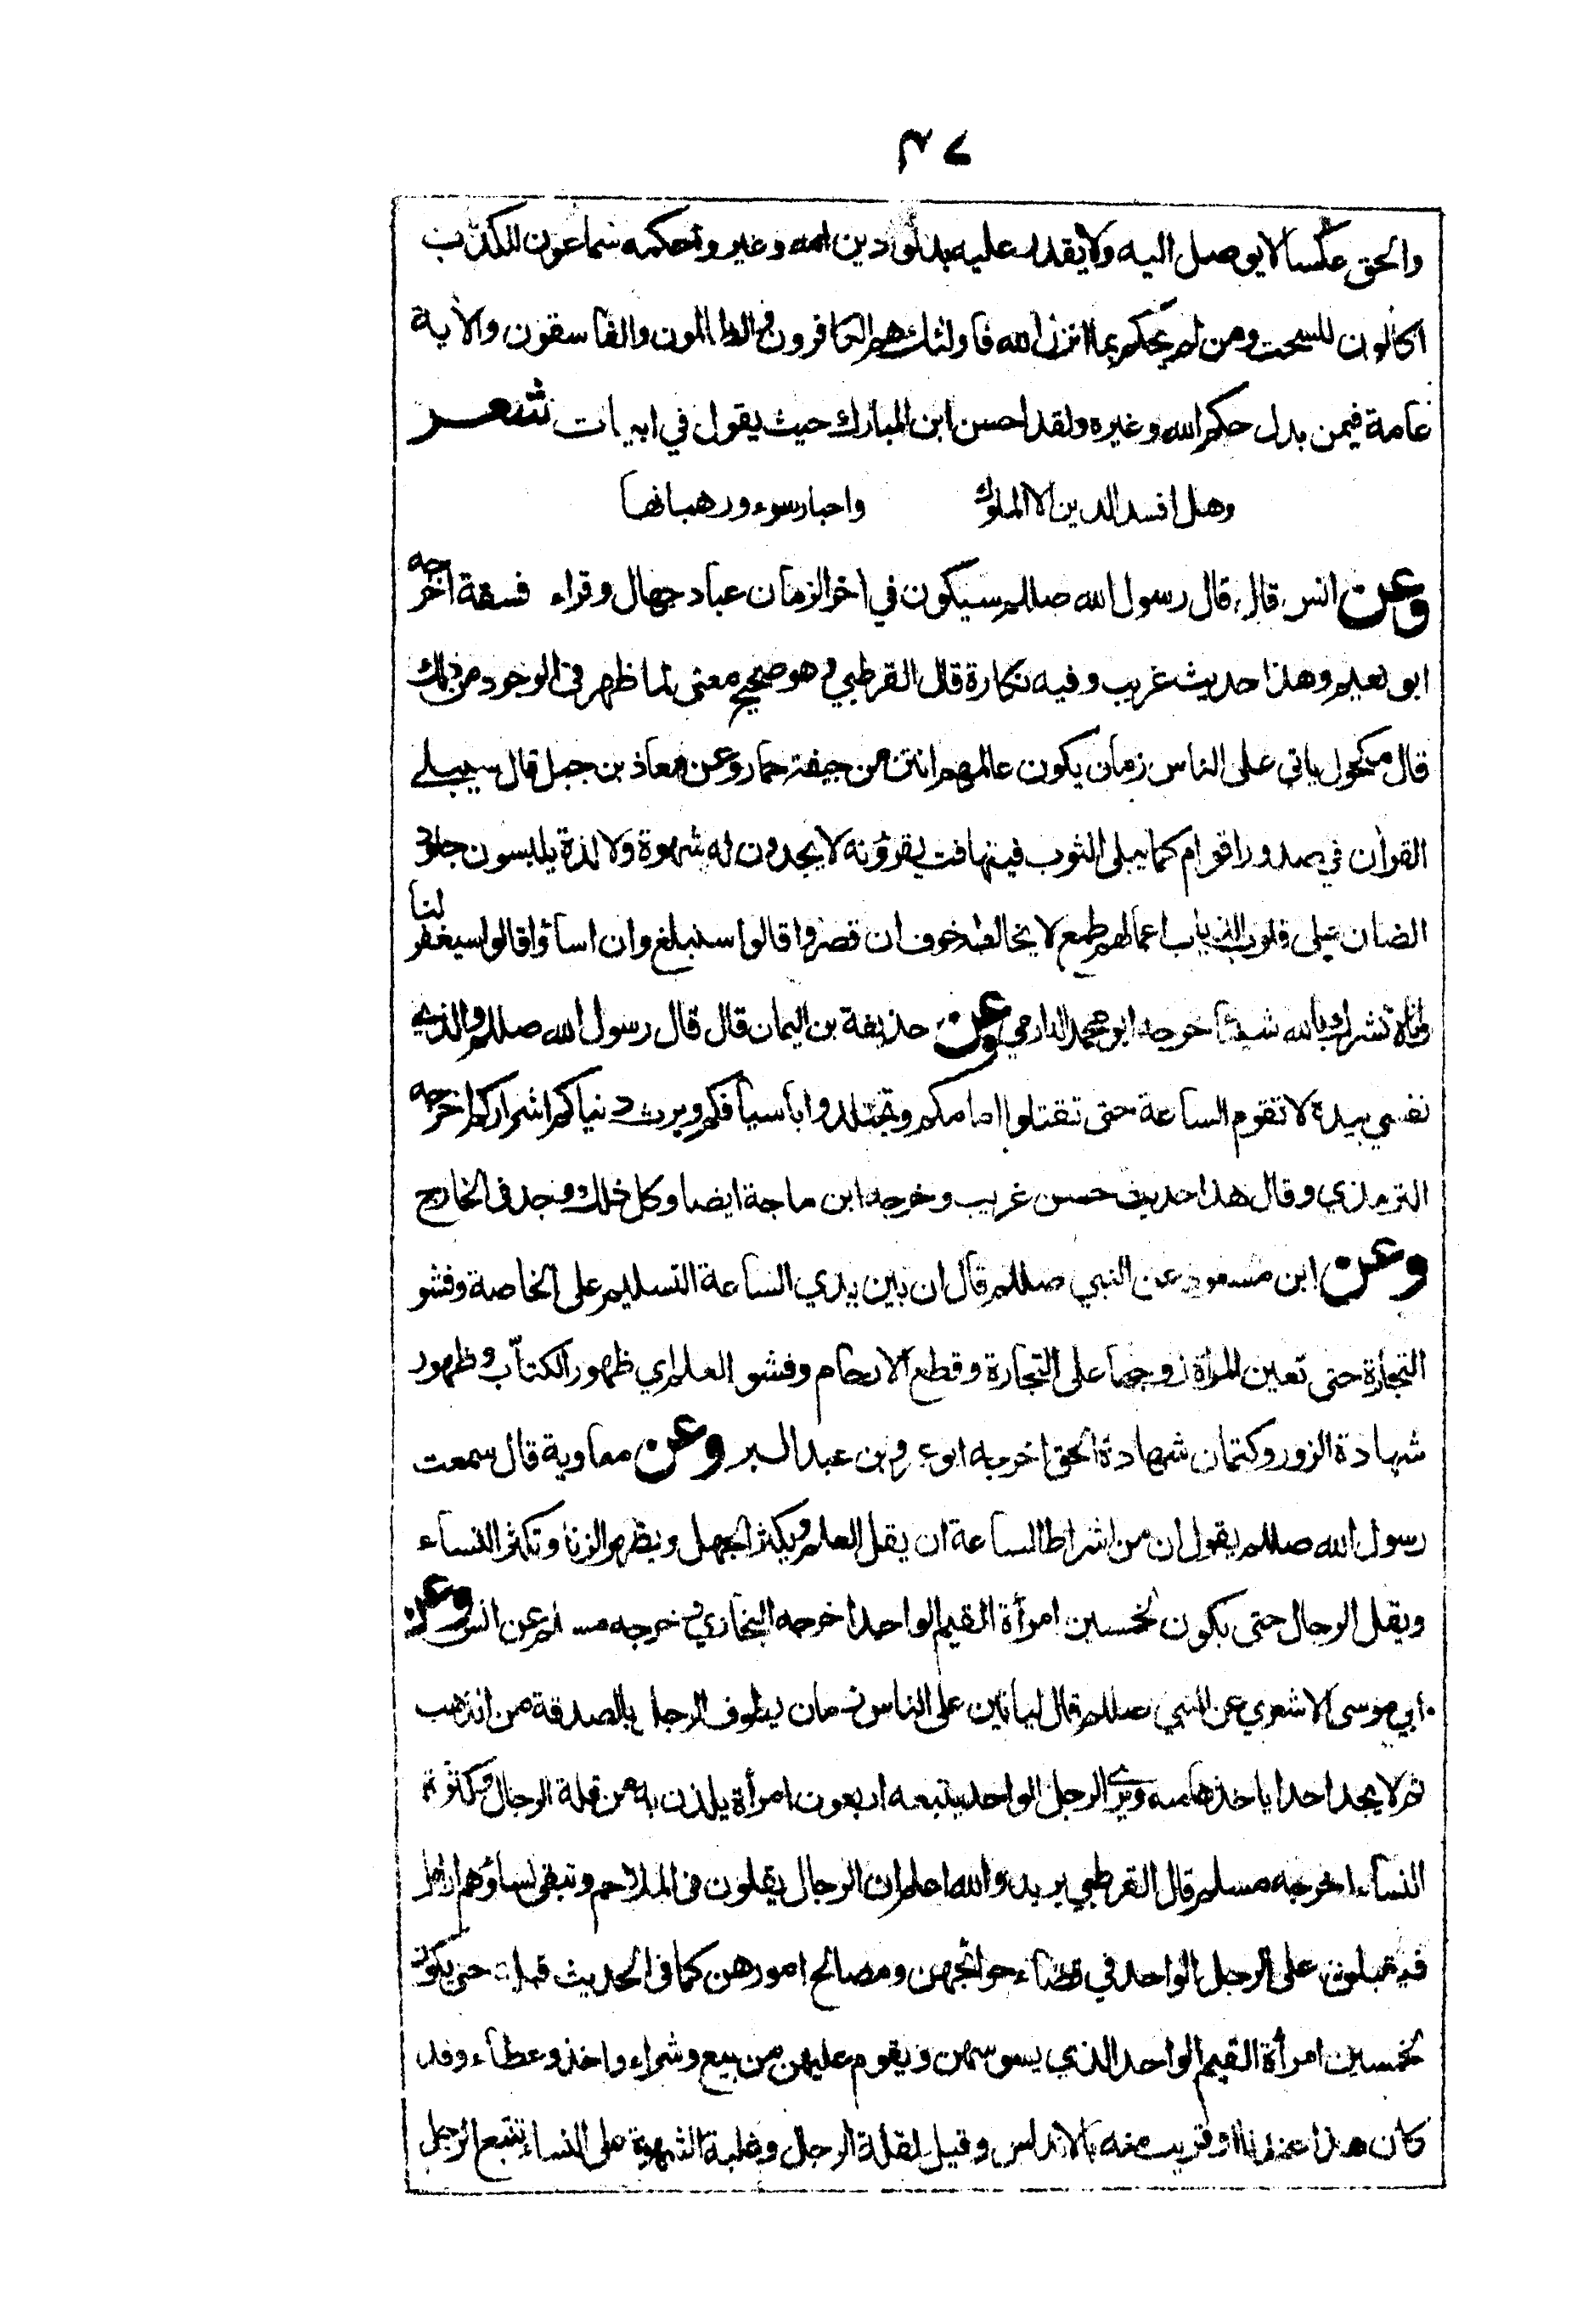 ٣٧
والحق عكسا لا يوصل اليه ولا يقدر عليه بدلوا دين الله وغيروا حكمه سماعون للكذب
اكالون للسحت ومن لم يحكم بما انزل الله فاولئك هم الكافرون والظالمون والفاسقون والأية
عامة فيمن بدل حكم الله وغيره ولقد احسن ابن المبارك حيث يقول في ابيات شعر
وهل افسد الدين الا الملوك واحبار سوء ورهبانها
وعن انس قال قال رسول الله صللم سيكون في اخر الزمان عباد جهال وقراء فسقة اخرجه
ابو نعيم وهذا حديث غريب وفيه نكارة قال القرطبي وهو صحيح معنى لما ظهر في الوجود من ذلك
قال مكحول ياتي على الناس زمان يكون عالمهم انتن من جيفة حمار وعن معاذ بن جبل قال سيبلى
القرأن في صدور اقوام كما يبلى الثوب فيتهافت يقرؤنه لا يجدون له شهوة ولا لذة يلبسون جلود
الضان على قلوب الذياب اعمالهم طمع لا يخالطه خوف ان قصروا قالوا سنبلغ وان اساؤا قالوا سيغفر لنا
انا لا نشرك بالله شيئا خرجه ابو محمد الدارمي وعن حذيفة بن اليمان قال قال رسول الله صللم والذي
نفسي بيده لا تقوم الساعة حتى تقتلوا امامكم وتجتلدوا باسيافكم ويرث دنياكم اشراركم اخرجه
الترمذي وقال هذا حديث حسن غريب وخرجه ابن ماجة ايضا وكل ذلك وجد في الخارج
وعن ابن مسعود عن النبي صللم قال ان بين يدي الساعة التسليم على الخاصة وفشو
التجارة حتى تعين المرأة زوجها على التجارة وقطع الارحام وفشو العلم اي ظهور الكتاب وظهور
شهادة الزور وكتمان شهادة الحق اخرجه ابو عمر بن عبد البر وعن معاوية قال سمعت
رسول الله صللم يقول ان من اشراط الساعة ان يقل العلم ويكثر الجهل ويظهر الزنا وتكثر النساء
ويقل الرجال حتى يكون لخمسين امرأة القيم الواحد اخرجه البخاري وخرجه مسلم عن انس وعن
ابي موسى الاشعري عن النبي صللم قال لياتين على الناس زمان يطوف الرجل بالصدقة من الذهب
ثم لا يجد احدا ياخذها منه ويرى الرجل الواحد يتبعه اربعون امرأة يلذن به من قلة الرجال وكثرة
النساء اخرجه مسلم قال القرطبي يريد والله اعلم ان الرجال يقلون في الملاحم وتبقى نساؤهم ارامل
فيقبلون على الرجل الواحد في قضاء حوائجهن ومصالح امورهن كما في الحديث قبله حتى يكون
لخمسين امرأة القيم الواحد الذي يسوسهن ويقوم عليهن من بيع وشراء واخذ وعطاء وقد
كان هذا عندنا او قريب منه بالاندلس وقيل لقلة الرجال وغلبة الشهوة على النساء تتبع الرجل